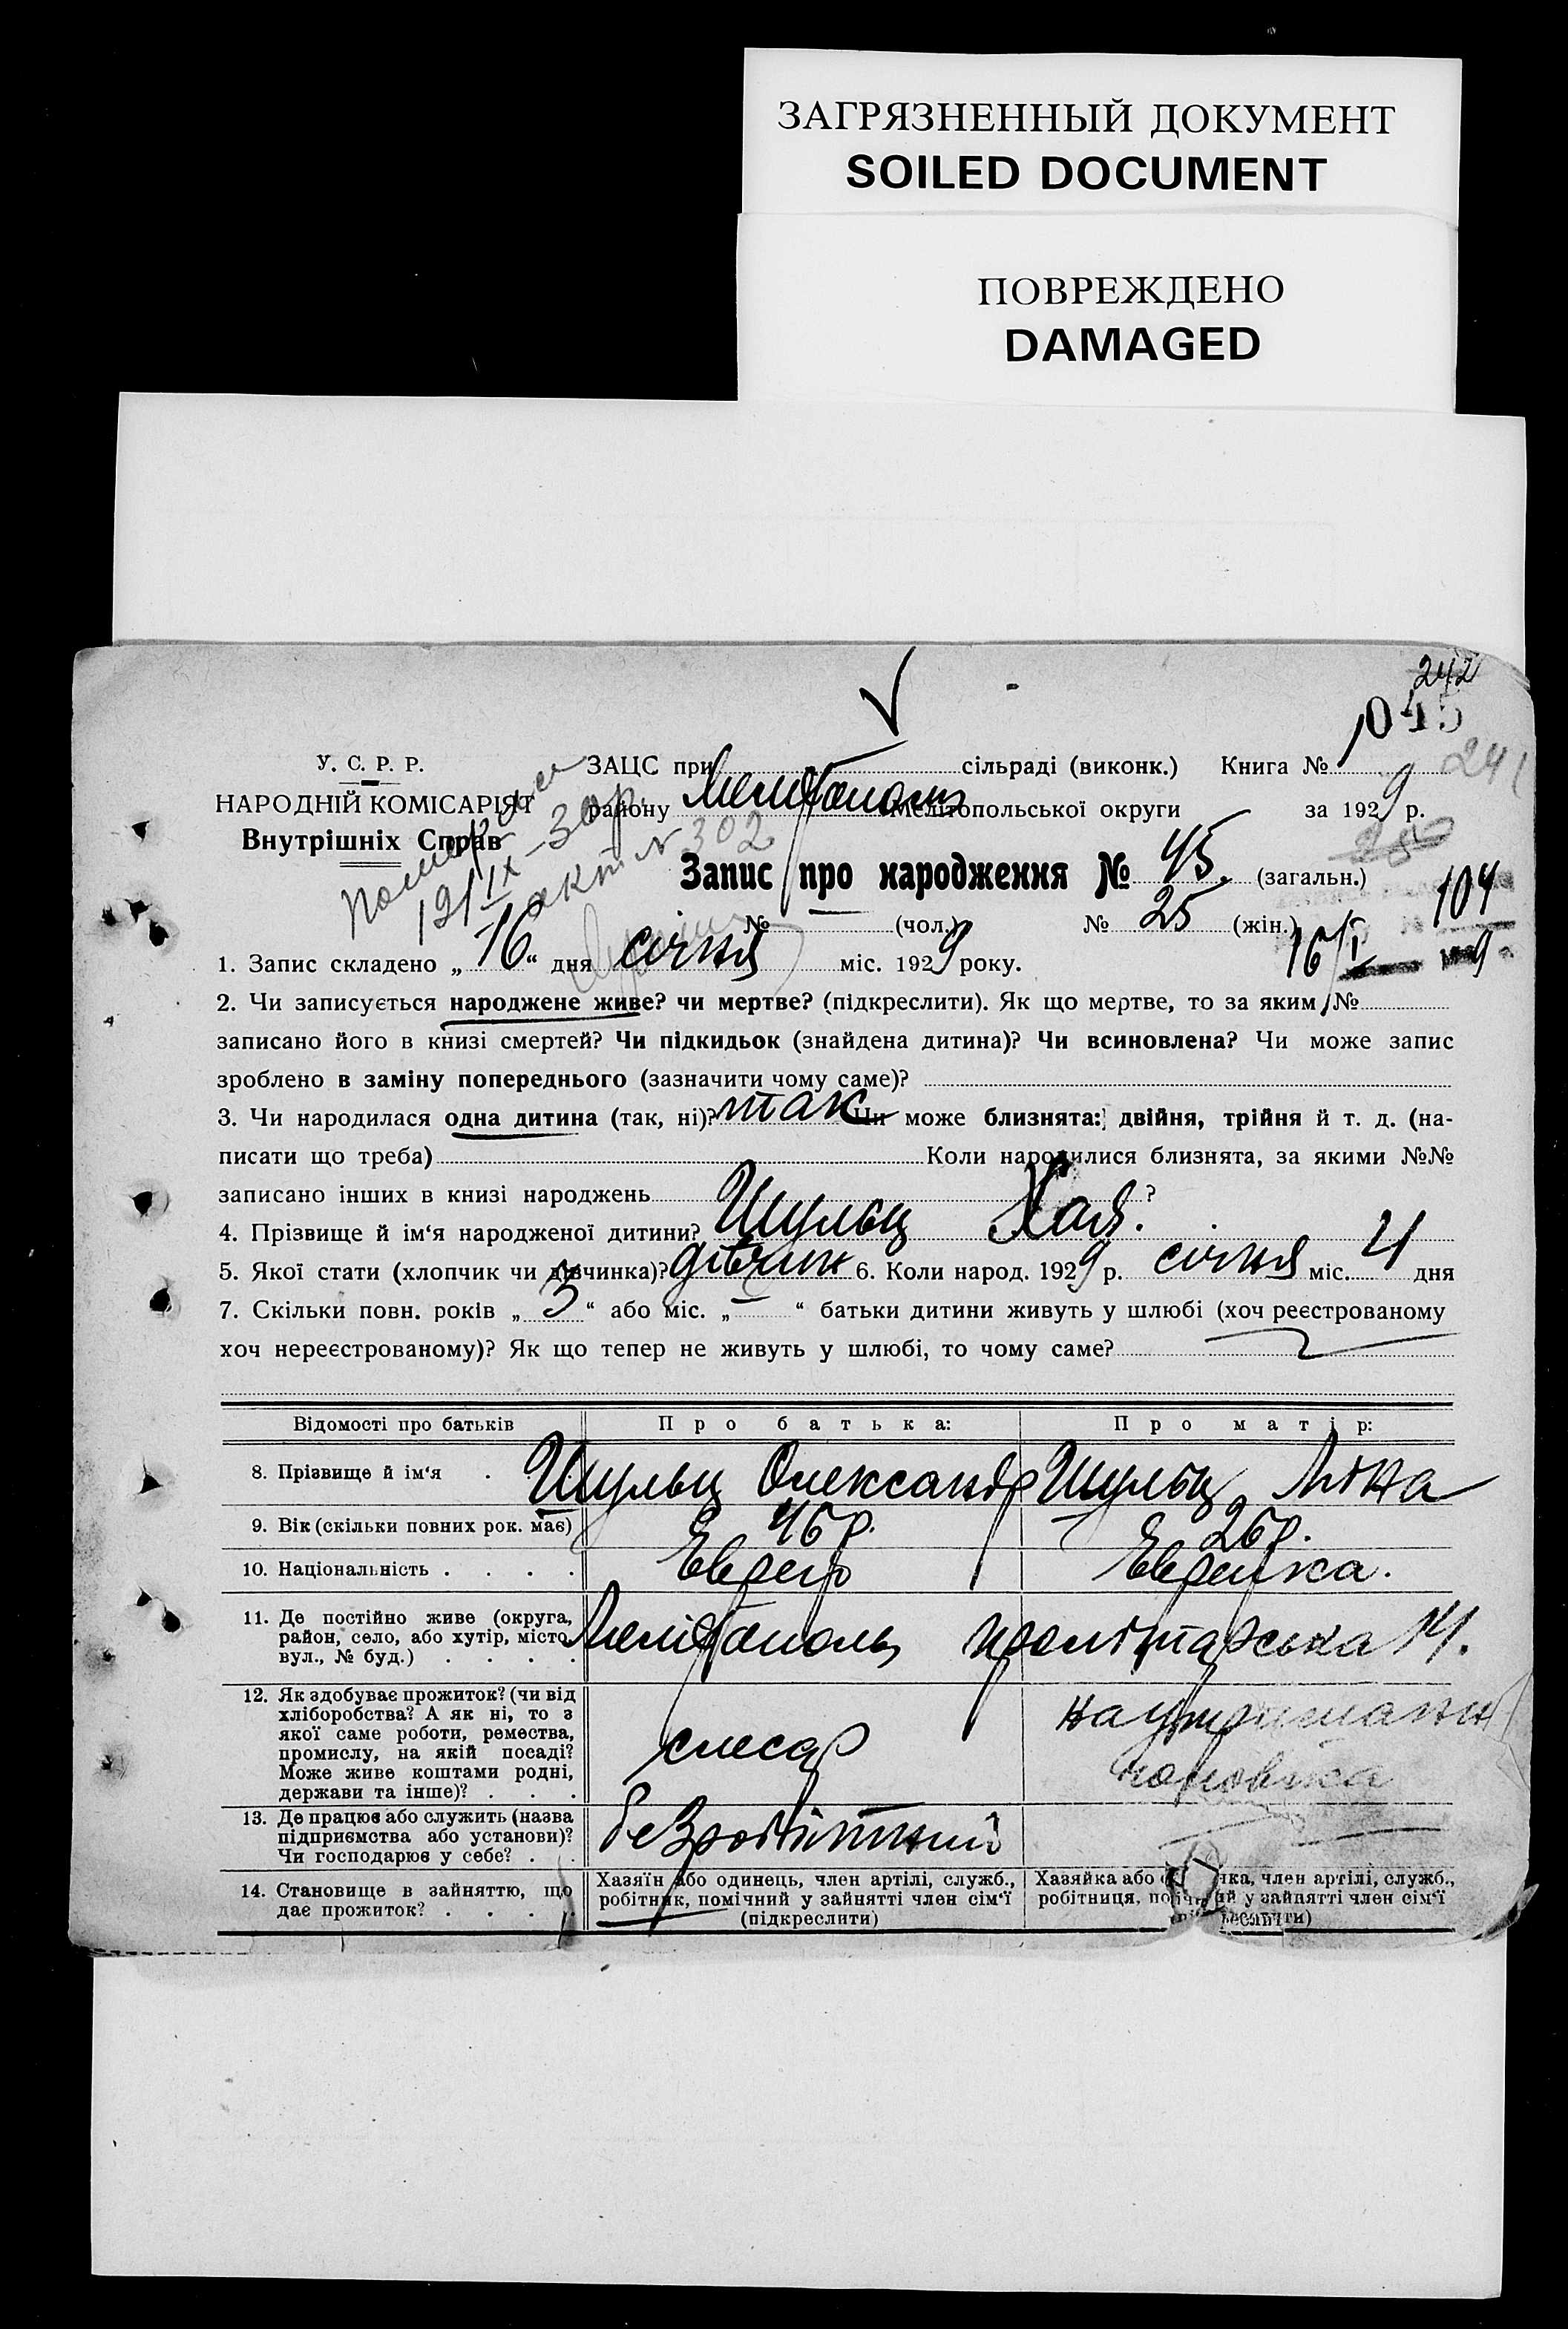 ЗАГРЯЗНЕННЫЙ ДОКУМЕНТ
SOILED DOCUMENT
ПОВРЕЖДЕНО
DAMAGED
242
045
241
У. С. Р. Р.
НАРОДНІЙ КОМІСАРІЯТ
Внутрішніх Справ
ЗАЦС при сільраді (виконк.) Книга №
району Мелітополь Мелітопольської округи за 1929 р.
Запис про народження № 45. (загальн.)
№ (чол.) № 25 (жін.)
акт N 302
104
16/I
1. Запис складено „16“ дня січня міс. 1929 року.
2. Чи записується народжене живе? чи мертве? (підкреслити). Як що мертве, то за яким №
записано його в книзі смертей? Чи підкидьок (знайдена дитина)? Чи всиновлена? Чи може запис
зроблено в заміну попереднього (зазначити чому саме)?
3. Чи народилася одна дитина (так, ні)? так Чи може близнята: двійня, трійня й т. д. (на-
писати що треба) Коли народилися близнята, за якими №№
записано інших в книзі народжень ?
4. Прізвище й ім‘я народженої дитини? Шульц Хая.
5. Якої стати (хлопчик чи дівчинка)? дівчин 6. Коли народ. 1929 р. січня міс. 4 дня
7. Скільки повн. років „3“ або міс. „—“ батьки дитини живуть у шлюбі (хоч реєстрованому
хоч нереєстрованому)? Як що тепер не живуть у шлюбі, то чому саме?
Відомості про батьків Про батька: Про матір:
8. Прізвище й ім‘я . Шульц Олександр Шульц Ліна
9. Вік (скільки повних рок. має) 46 р. 26 р.
10. Національність . . . . Еврей Еврейка.
11. Де постійно живе (округа,
район, село, або хутір, місто,
вул., № буд.) . . . . Мелітополь Пролітарська 14.
12. Як здобуває прожиток? (чи від
хліборобства? А як ні, то з
якої саме роботи, ремества,
промислу, на якій посаді?
Може живе коштами родні,
держави та інше)? . . .
слесар
на утриманні
чоловіка
13. Де працює або служить (назва
підприємства або установи)?
Чи господарює у себе? . .
безробітний
14. Становище в зайняттю, що
дає прожиток? . . . .
Хазяїн або одинець, член артілі, служб.,
робітник, помічний у зайнятті член сім‘ї
(підкреслити)
Хазяйка або член артілі, служб.,
робітниця, у зайнятті член сім‘ї